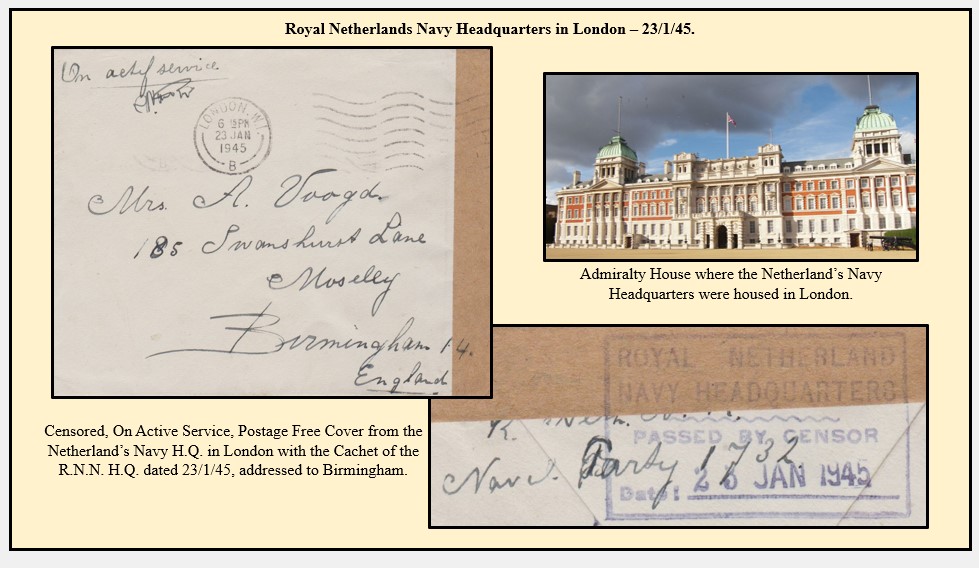 Royal Netherlands Navy Headquarters in London – 23/1/45.
On actif service
LONDON. W.1.
6 15PM
23 JAN
1945
B
Mrs. A. Voogd.
185 Swanshurst Lane
Moselly
Birmingham 14.
England
Admiralty House where the Netherland's Navy
Headquarters were housed in London.
Censored, On Active Service, Postage Free Cover from the
Netherland's Navy H.Q. in London with the Cachet of the
R.N.N. H.Q. dated 23/1/45, addressed to Birmingham.
ROYAL NETHERLAND
NAVY HEADQUARTERS
PASSED BY CENSOR
Nav. Party 1732.
Date: 23 JAN 1945